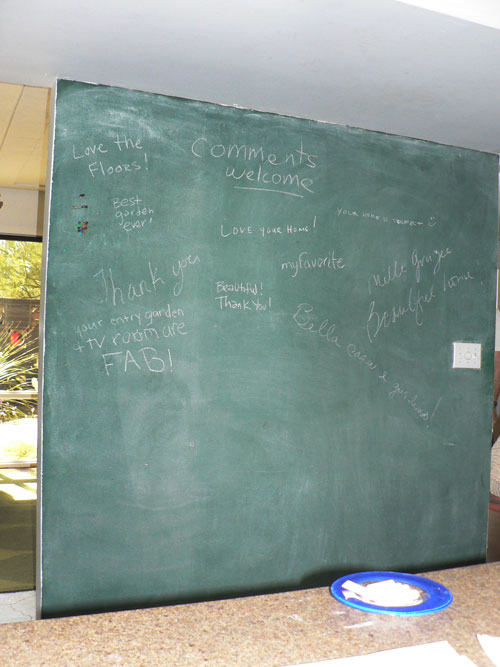 Comments
welcome
Love the
Floors!
Best
garden
ever!
Love your Home!
your home is perfect
Thank you
your entry garden
+ TV room are
FAB!
my favorite
Beautiful!
Thank You!
Mille Grazie
Beautiful home
Bella casa e giardino